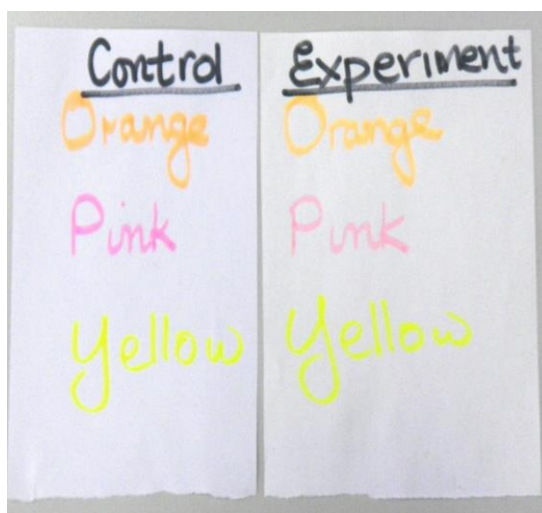 Control
Orange
Pink
Yellow
Experiment
Orange
Pink
Yellow